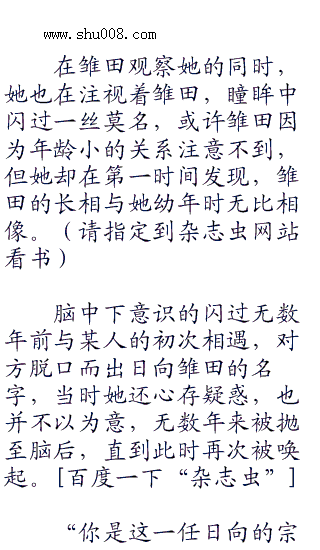 www.shu008.com
在雏田观察她的同时，
她也在注视着雏田，瞳眸中
闪过一丝莫名，或许雏田因
为年龄小的关系注意不到，
但她却在第一时间发现，雏
田的长相与她幼年时无比相
像。（请指定到杂志虫网站
看书）
脑中下意识的闪过无数
年前与某人的初次相遇，对
方脱口而出日向雏田的名
字，当时她还心存疑惑，也
并不以为意，无数年来被抛
至脑后，直到此时再次被唤
起。[百度一下“杂志虫”]
“你是这一任日向的宗